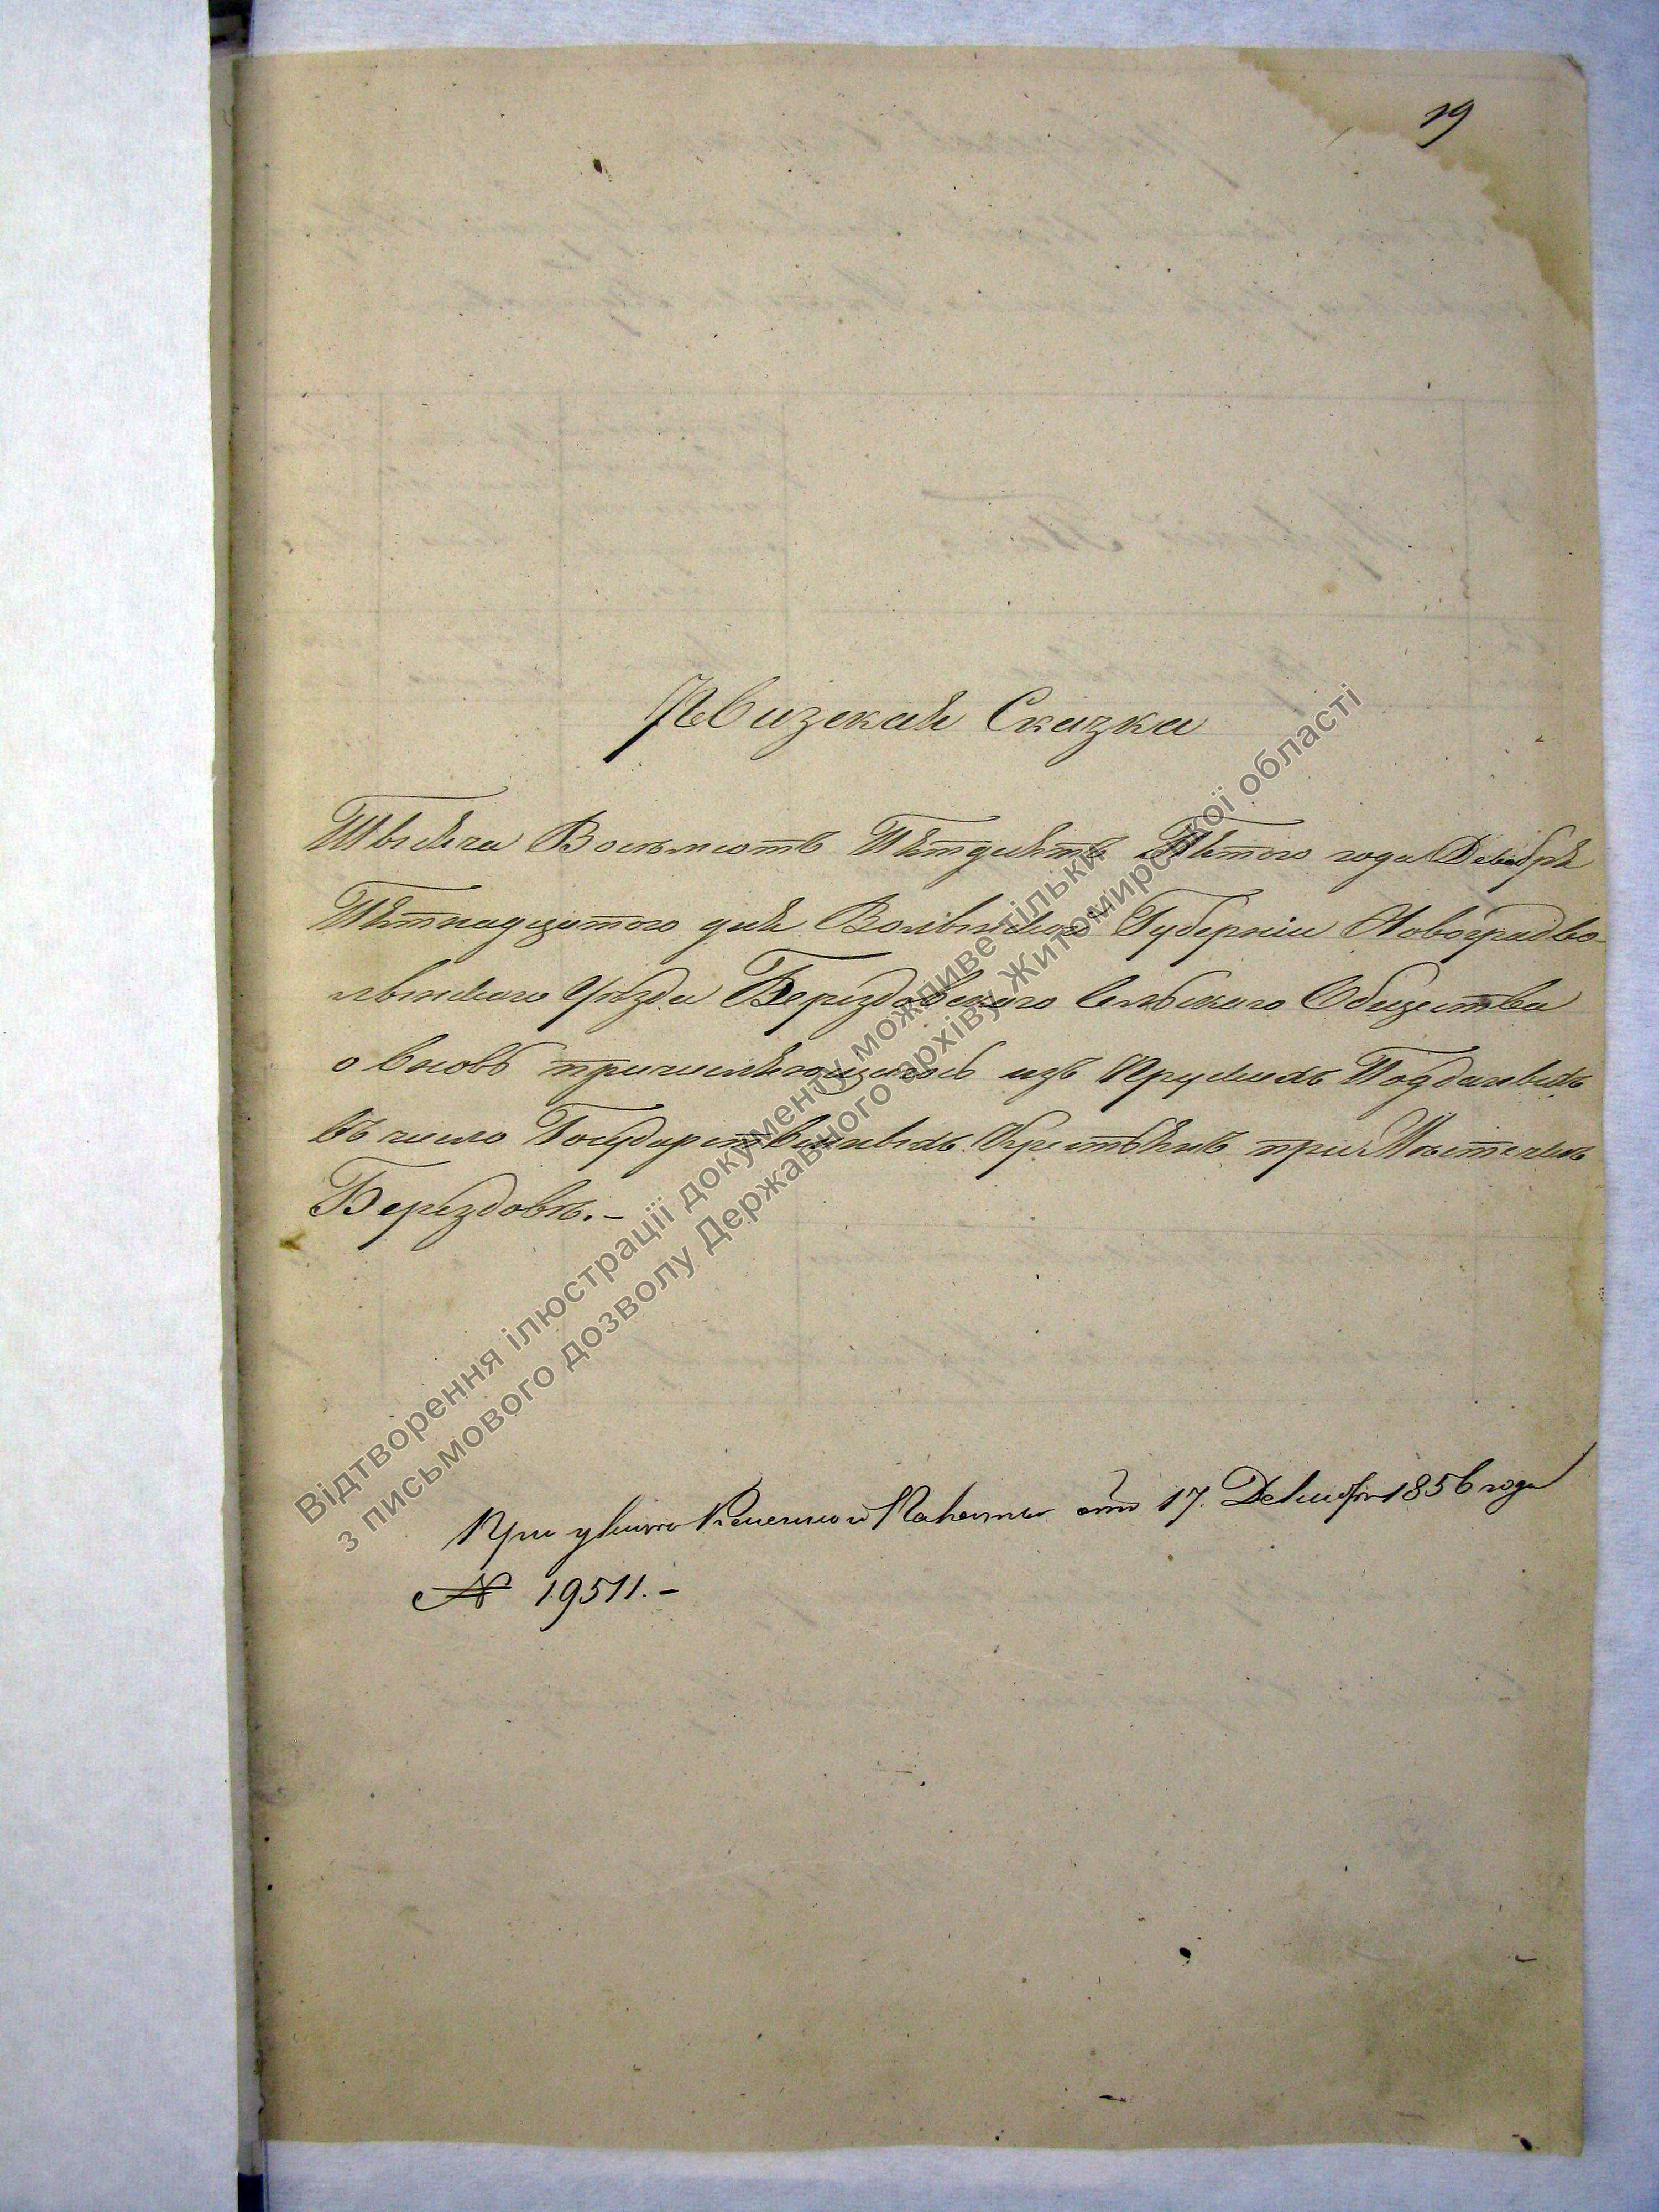 19
Ревизская Сказка
Тысяча Восемьсотъ Пятдесятъ Пятого года Декабря
Пятнадцатого дня Волынской Губерніи Новоградво-
лынского Уѣзда Берездовского Сельского Общества
о вновь причисляющихся изъ Прускихъ Подданныхъ
въ число Государственныхъ Крестьянъ при Мѣстечкѣ
Берездовѣ.-
При указѣ Казенной Палаты отъ 17. Декабря 1856 года
№ 19511.-
Відтворення ілюстрації документу можливе тільки
з письмового дозволу Державного архіву Житомирської області